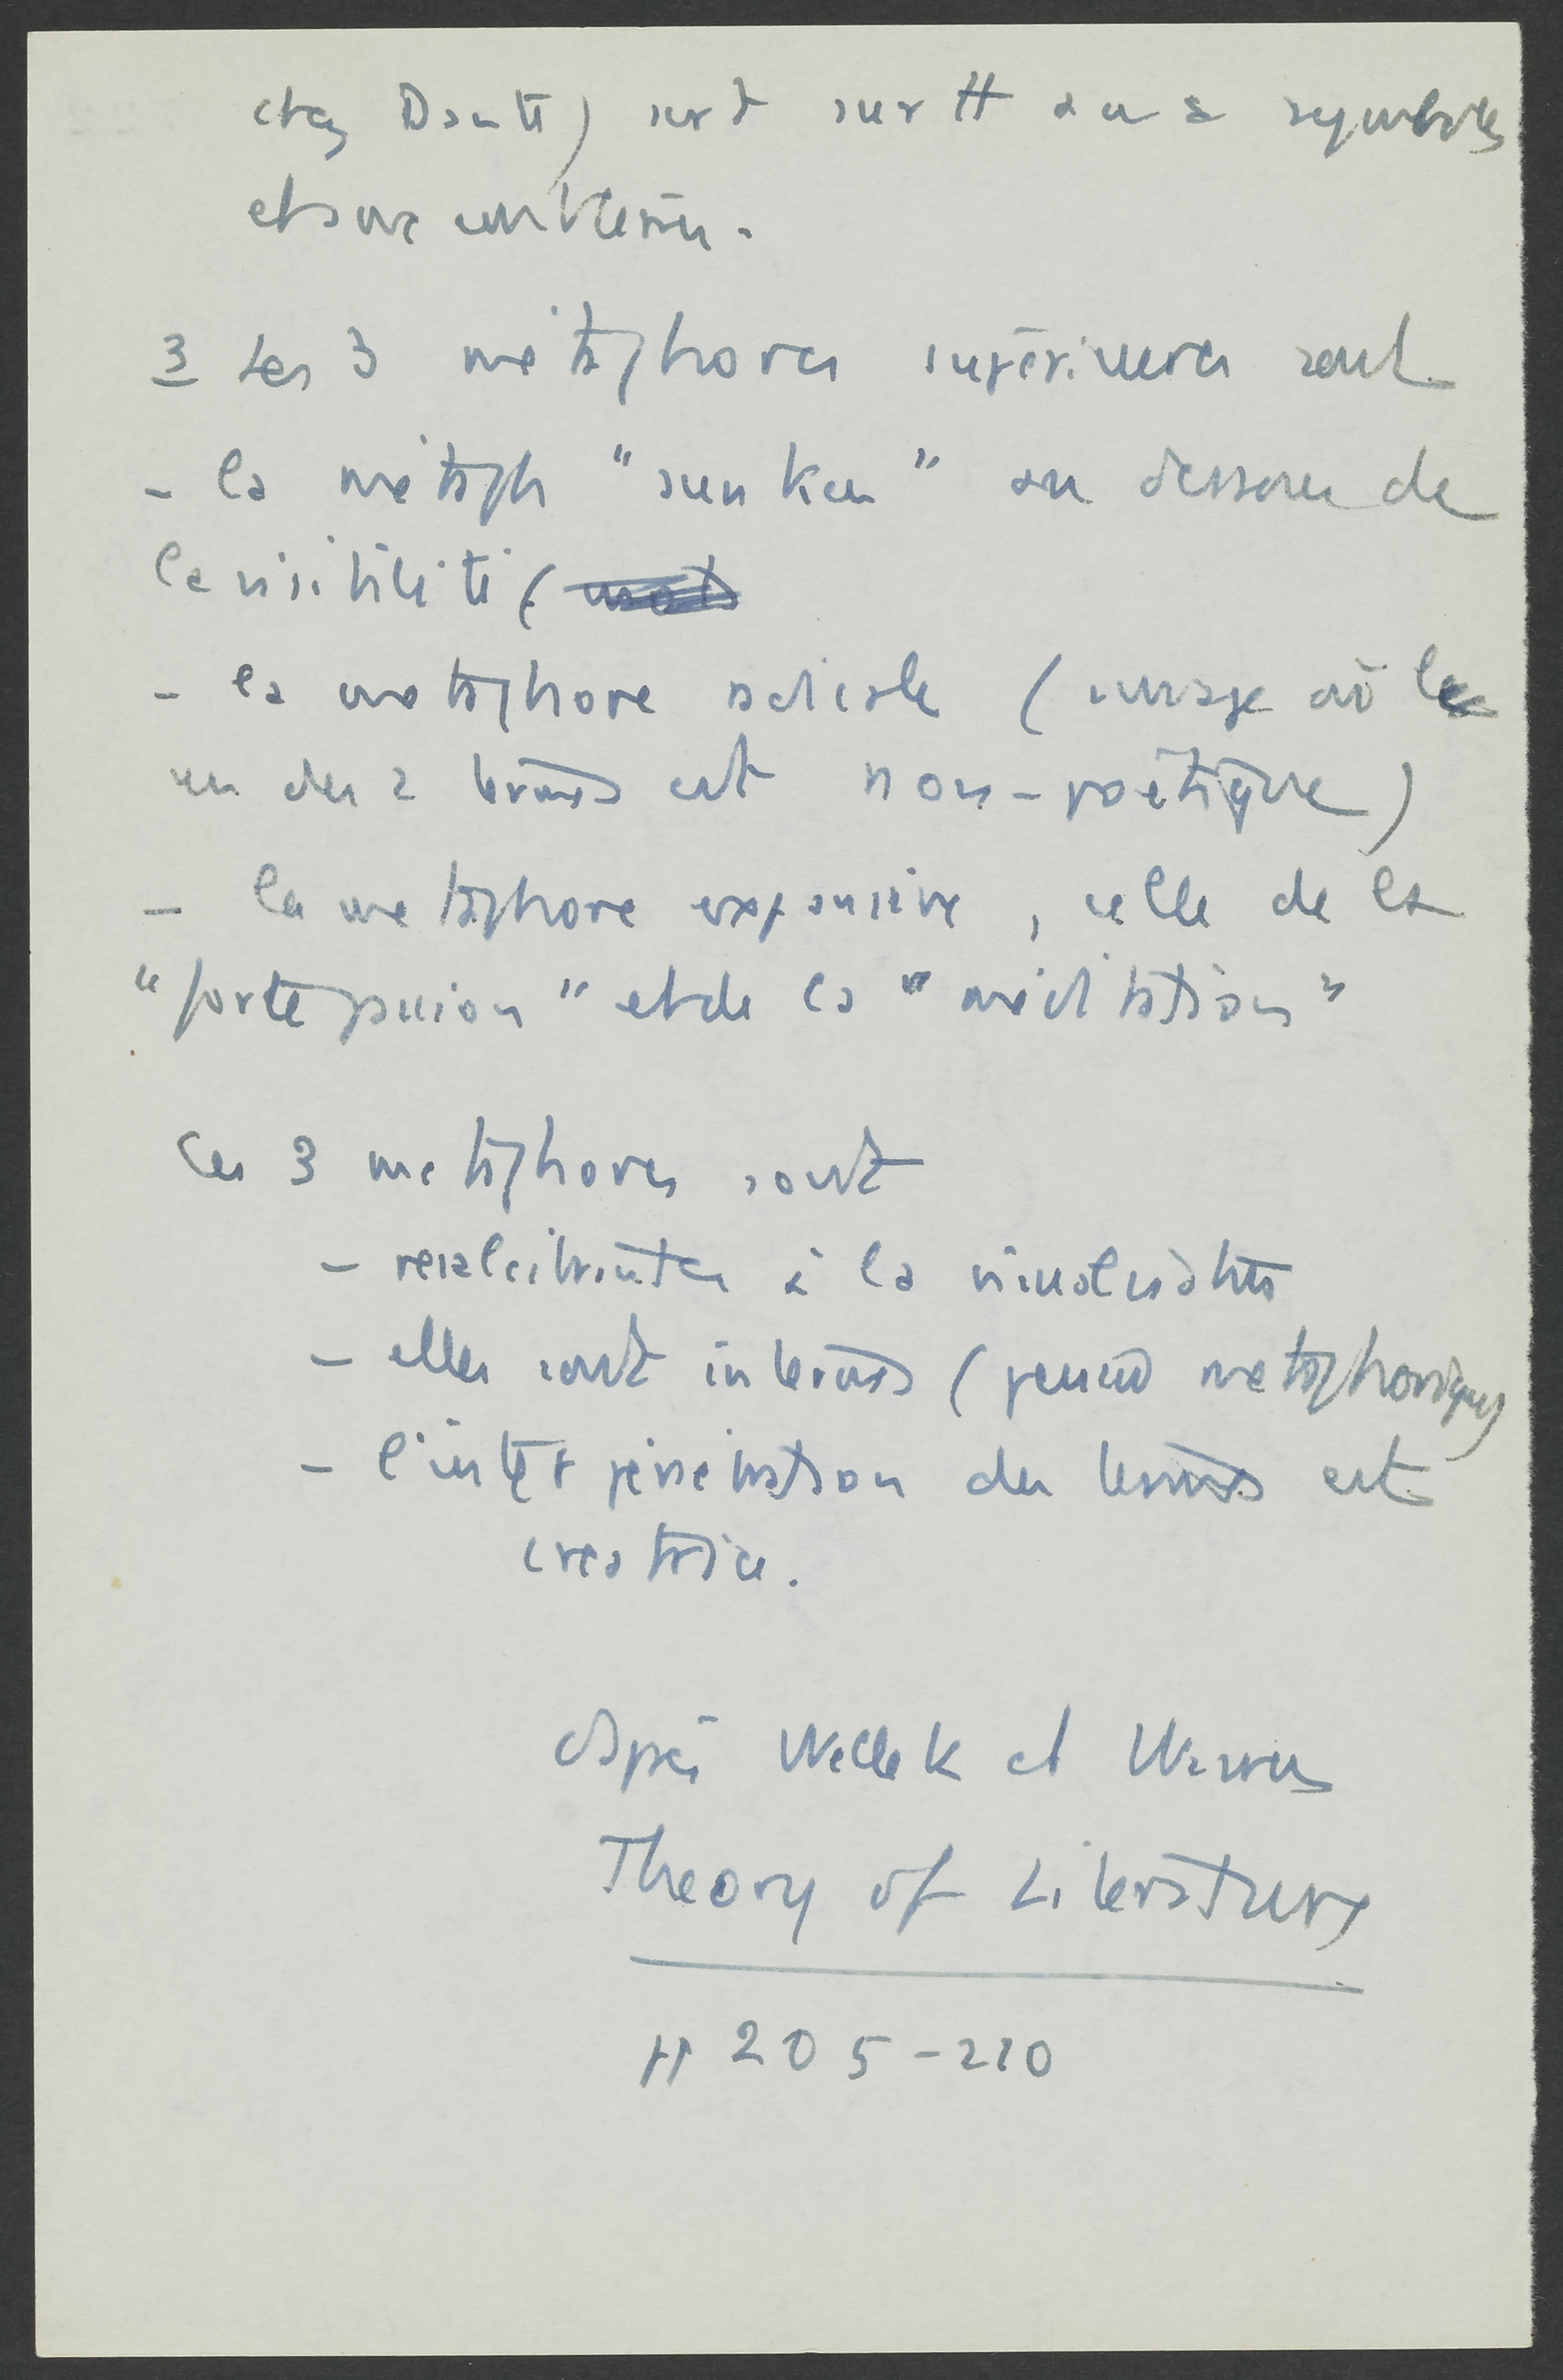 chez Dante) sert surtt aux symboles
et aux emblèmes.
3 Les 3 métaphores supérieures sont
- la métaph "sunken" au dessous de
la visibilité (mots
- la metaphore radicale (image où le
un des 2 termes est non-poétique)
- la metaphore expansive, celle de la
"forte passion" et de la "méditation"
Ces 3 metaphores sont
- récalcitrantes à la visualisation
- elles sont internes (pensée metaphorique)
- l'inter pénétration des termes est
creatrice.
d'après Wellek et Warren
Theory of Literature
pp 205-210